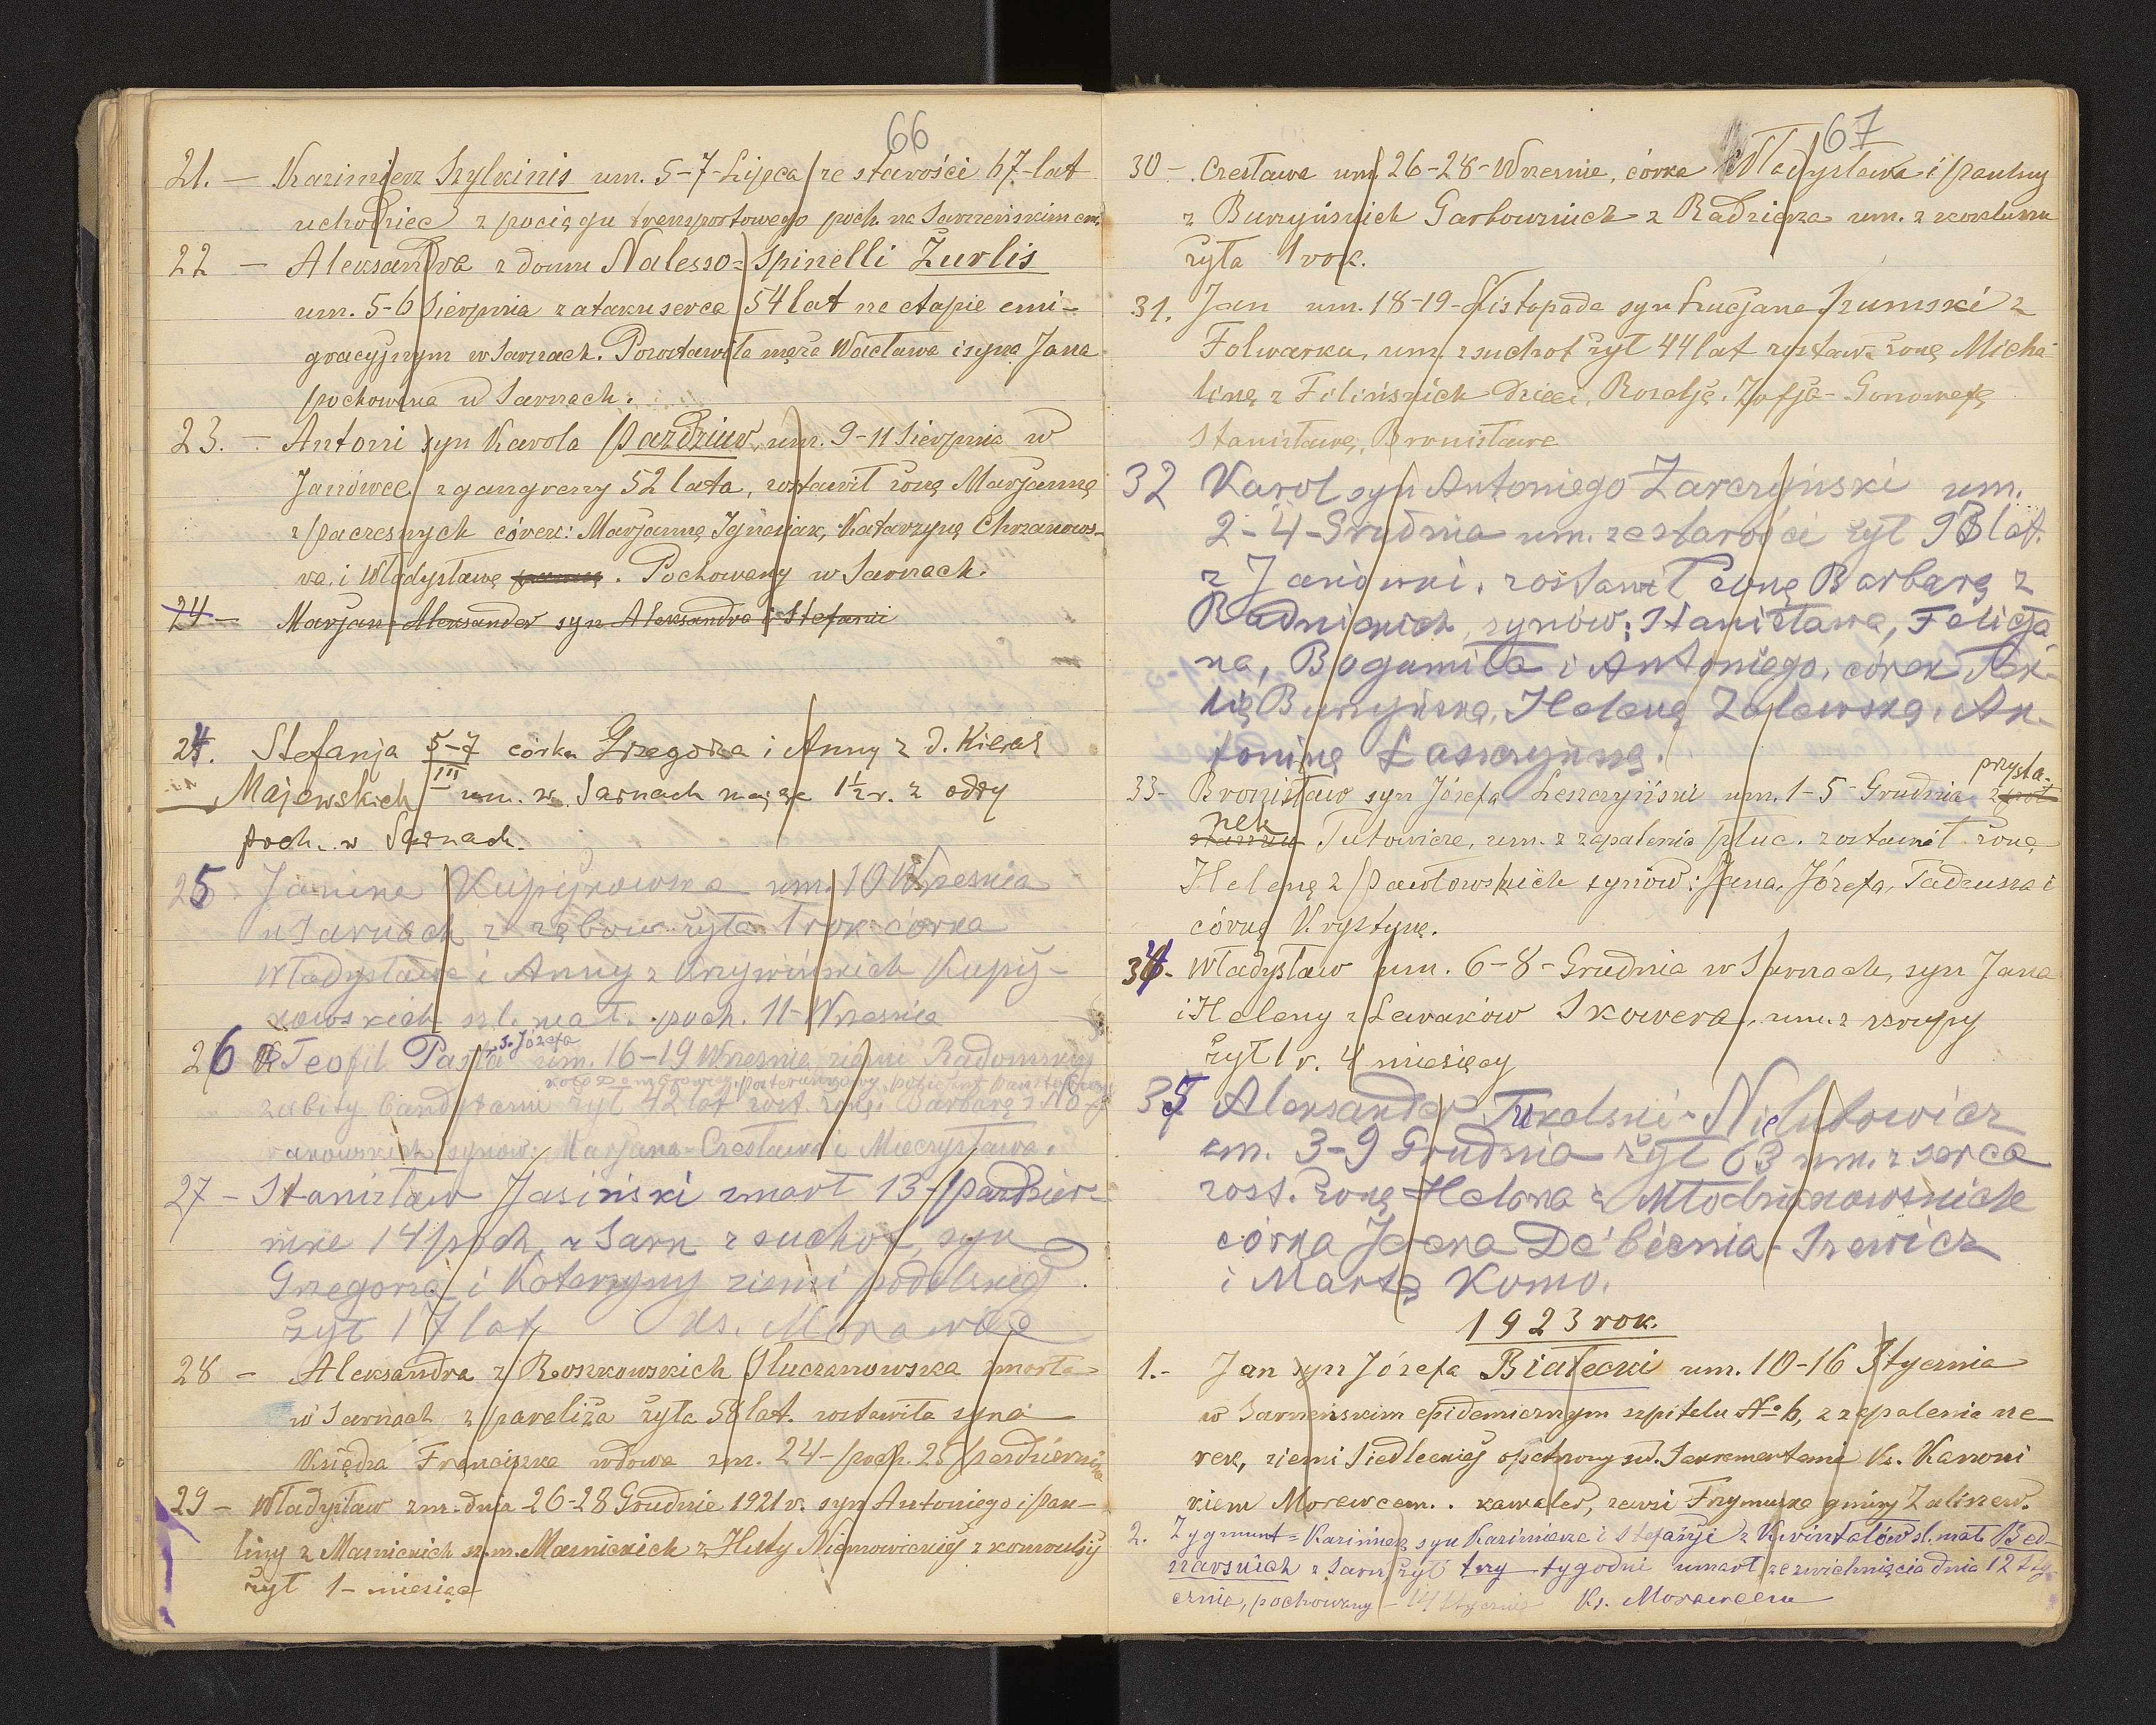 66
21. — Kazimierz Szylkinis um. 5-7-Lipca ze starości 67-lat
uchodniec z pociągu transportowego poch. na Sarneńskim cm.
22 — Aleksandra z domu Nalesso=Spinelli Żurlis
um. 5-6 Sierpnia z ataku serca 54 lat na etapie emi-
gracyjnym w Sarnach. Pozostawiła męża Wacława i syna Jana
pochowana w Sarnach.
23. — Antoni syn Karola Pazdziur, um. 9-11 Sierpnia w
Janówce z gangreny 52 lata, zostawił żonę Marjannę
z Paczesnych córek: Marjannę Ignasiak, Katarzynę Chrzanows-
ka, i Władysławę . Pochowany w Sarnach.
24 — Marjan-Aleksander syn Aleksandra i Stefanii
24. Stefanja 5-7 córka Grzegorza i Anny z d. Kieraś
III
Majewskich um. w Sarnach mając 1½ r. z odry
poch. w Sarnach.
25 Janina Kupijkowska um. 10 Wresnia
w Sarnach z ząbów żyła 1 rok córka
Władysława i Anny z Krzywińskich Kupij-
kowskich sl. małż. poch. 11-Wresnia
s. Józefa
26 Teofil Pasta um. 16-19 Wresnia ziemi Radomskiej
zabity bandytami żył 42 lat zost. żonę Barbarę z No-
wakowskich synów: Marjana-Czesława i Mieczysława.
27 — Stanisław Jasiński zmarł 13-Paździer-
nika 14 poch. w Sarn z suchot, syn
Grzegorza i Katarzyny ziemi podolskiej
żył 17 lat Ks. Morawiec
28 — Aleksandra z Roszkowskich Słuczanowska zmarła
w Sarnach z paraliża żyła 58 lat. zostawiła syna
Księdza Franciszka wdowa zm. 24-poch. 25 Październ.
29 — Władysław zm. dnia 26-28 Grudnia 1921 r. syn Antoniego i Pau-
liny z Marnickich sl. m. Marnickich z Huty Niemowickiej z konwulsij
żył 1- miesiąc
67
30 — Czesława um. 26-28-Wresnia, córka Władysława i Pauliny
z Burzyńskich Garbowniuch z Radzieża um. z kokluszu
żyła 1 rok.
31. Jan um. 18-19-Listopada syn Lucjana Szumski z
Folwarku, um. z suchot żył 44 lat zostaw. żonę Micha-
linę z Filińskich Dzieci, Rozalję, Zofja-Gonowefę
Stanisławę, Bronisława
32 Karol syn Antoniego Zarczyński um.
2-4-Grudnia um. ze starości żył 93 lat.
z Janówki. zostawił żonę Barbarę z
Rudnickich, synów: Stanisława, Felicja
na, Bogumiła i Antoniego, córek Tek-
lię Burzyńską, Helenę Zalewską, An-
toninę Łaszczyńską.
przysta-
33- Bronisław syn Józefa Leszczyński um. 1-5-Grudnia z
nek
Tutowicze, um. z zapalenia płuc. zostawił żonę
Helenę z Pawłowskich synów: Jana, Józefa, Tadeusza i
córkę Krystynę.
34- Władysław um. 6-8-Grudnia w Sarnach, syn Jana
i Heleny z Lewaków Skowera, um. z krupy
żył 1 r. 4 miesięcy
35 Aleksander Tukalski-Nielubowicz
um. 3-9 Grudnia żył 63 um. z serca
zost. żonę Helena z Młodzianowskich
córka Jana
i Martę Komo.
1923 rok.
1.- Jan syn Józefa Białecki um. 10-16 Stycznia
w Sarneńskim epidemicznym szpitalu № 6, z zapalenia ne-
rek, ziemi Siedleckiej opatrzony św. Sakramentami Ks. Kanoni
kiem Morawcem.. kawaler, zewsi Frymuska gminy Zaliszew.
2. Zygmunt=Kazimierz syn Kazimierza i Stefanji z Kwintalów sl. małż. Bed-
narskich z Sarn żył trzy tygodni umarł ze zwichnięcia dnia 12 sty-
cznia, pochowany - 14 Stycznia Ks. Morawcem